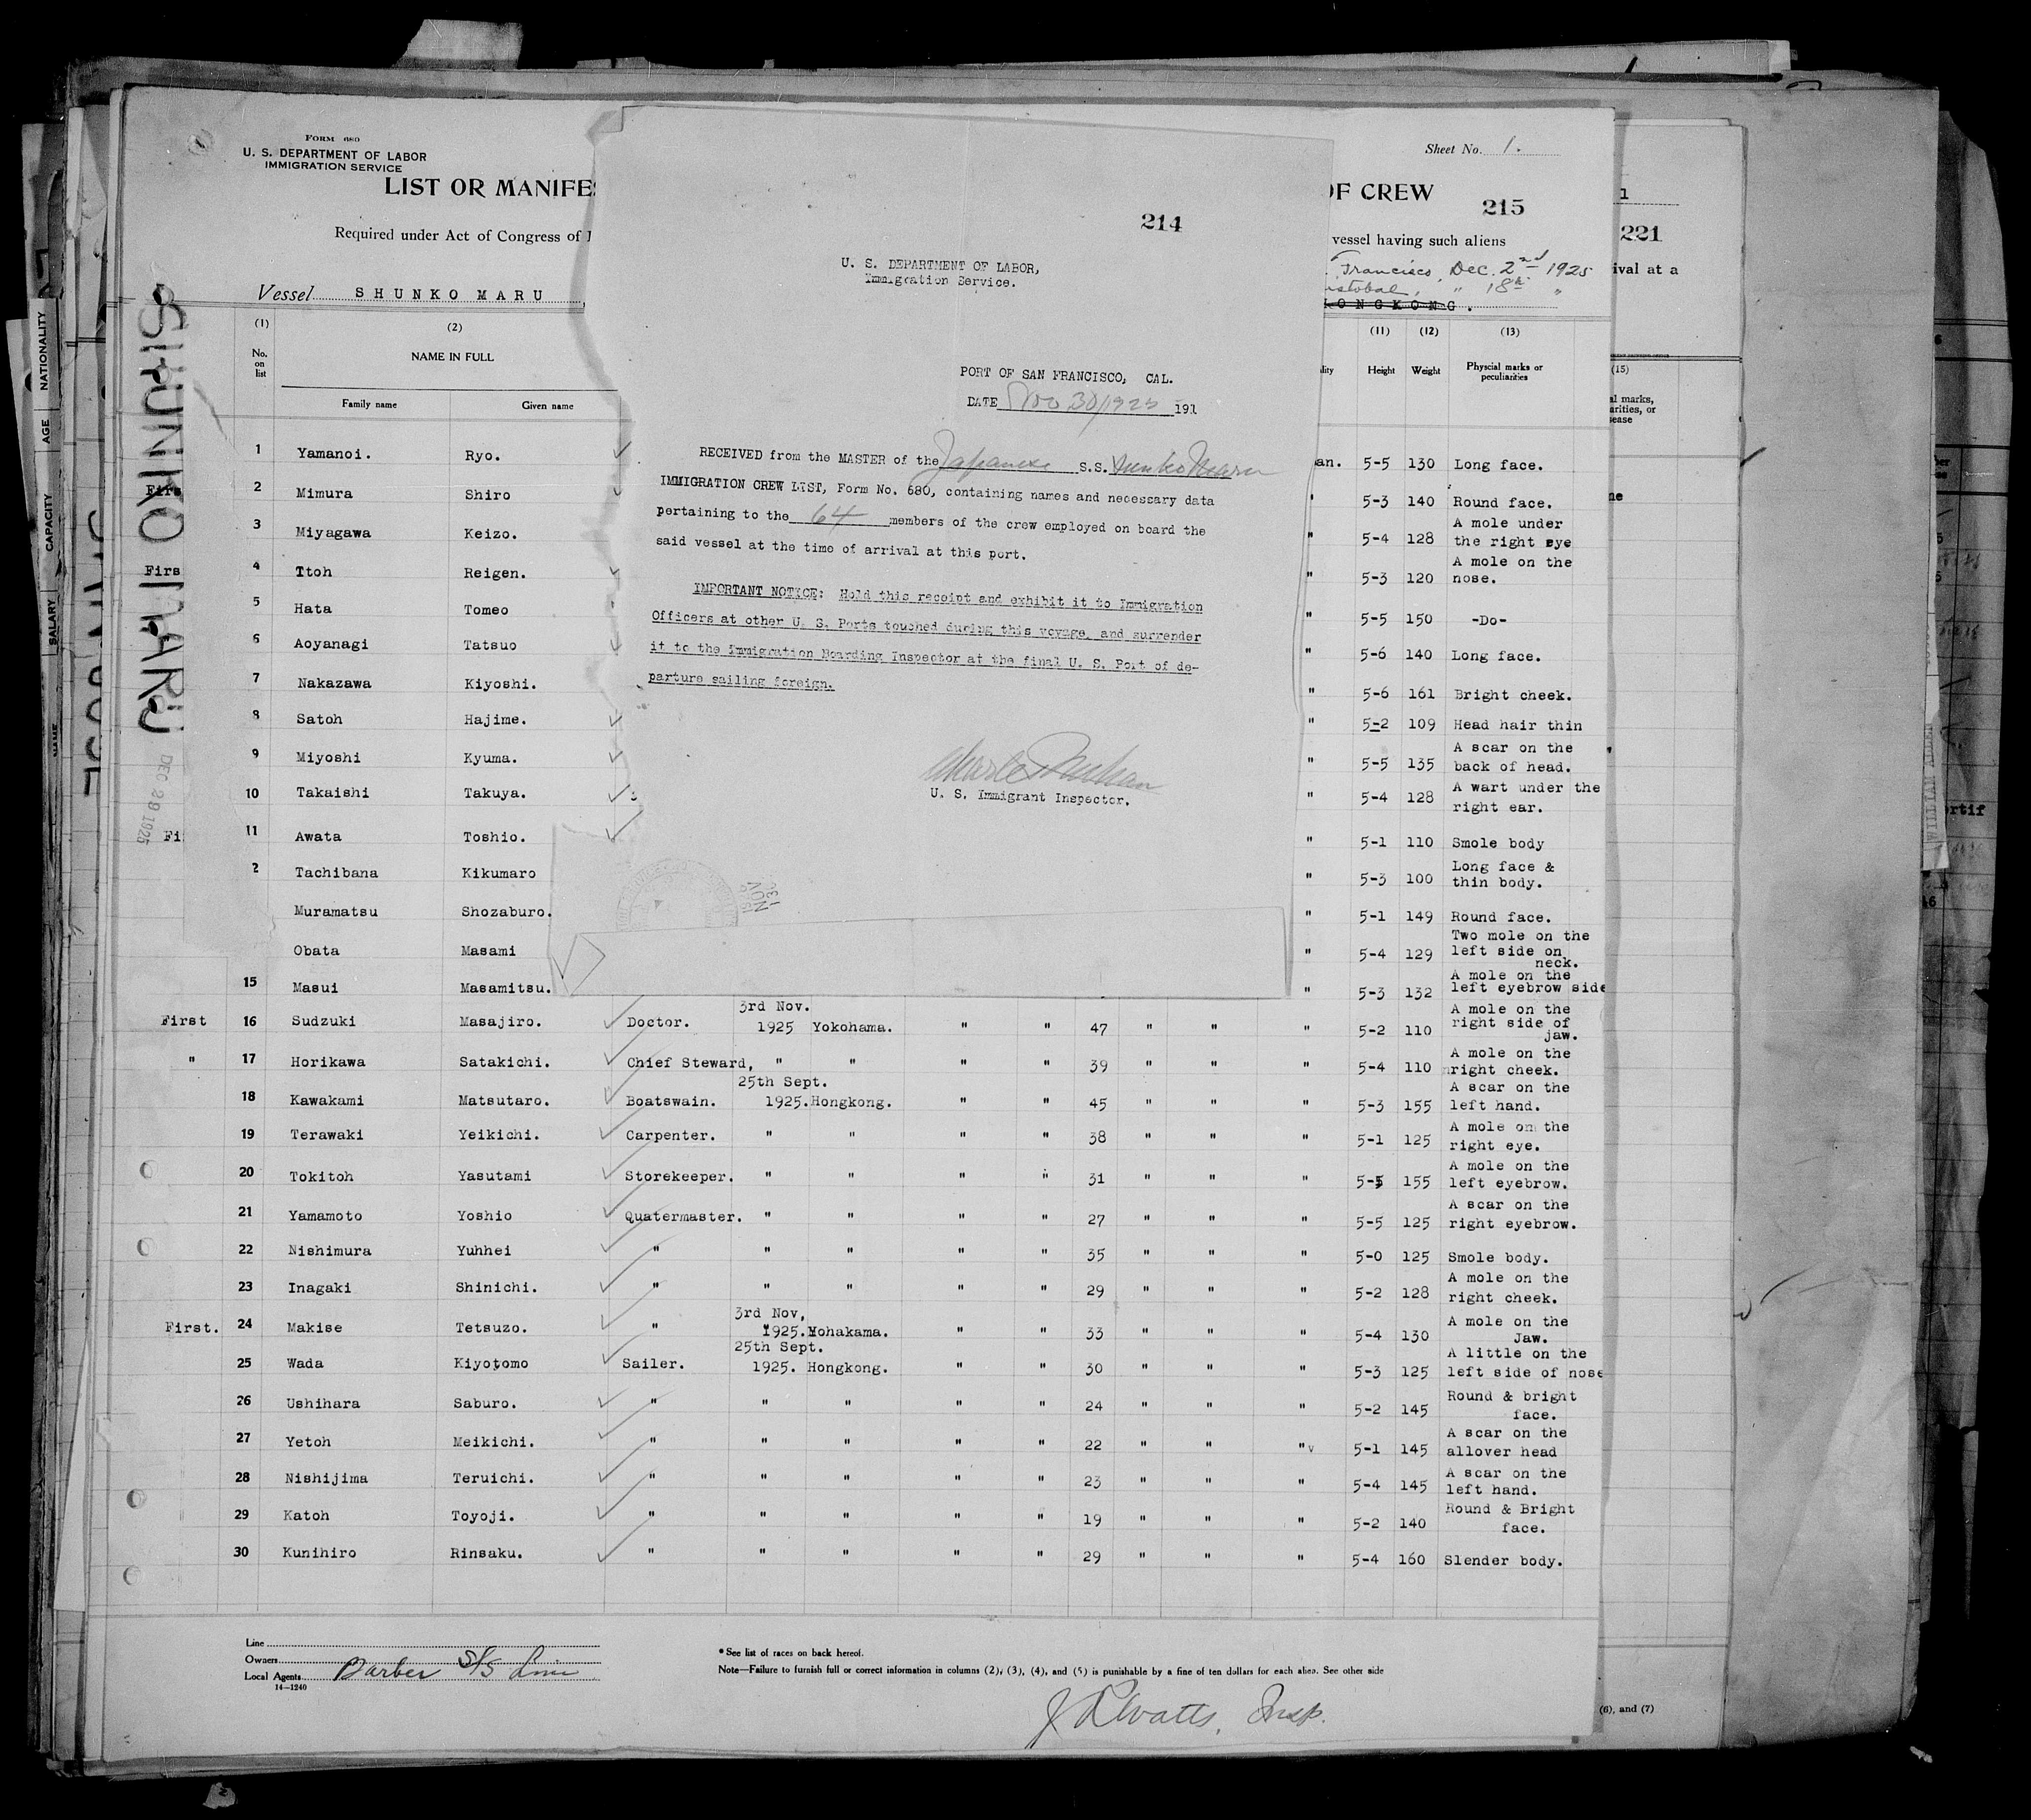 FORM 680
U. S. DEPARTMENT OF LABOR
IMMIGRATION SERVICE
LIST OR MANIFE
OF CREW
Sheet No. 1.
215
Required under Act of Congress of
vessel having such aliens
Vessel SHUNKO MARU
Francisco, Dec. 2nd 1925
" 18th "
HONGKONG.
SHUNKO MARU
DEC 29 1925
214
U. S. DEPARTMENT OF LABOR,
Immigration Service.
PORT OF SAN FRANCISCO, CAL.
DATE Nov 30/1925 191
RECEIVED from the MASTER of the Japanese S.S. Shunko Maru
IMMIGRATION CREW LIST, Form No. 680, containing names and necessary data
pertaining to the 64 members of the crew employed on board the
said vessel at the time of arrival at this port.
IMPORTANT NOTICE: Hold this receipt and exhibit it to Immigration
Officers at other U. S. Ports touched during this voyage, and surrender
it to the Immigration Boarding Inspector at the final U. S. Port of de-
parture sailing foreign.
U. S. Immigrant Inspector.
(1) (2) (11) (12) (13)
No. on list NAME IN FULL Height Weight Physcial marks or peculiarities
Family name Given name
1 Yamanoi. Ryo. an. 5-5 130 Long face.
Firs 2 Mimura Shiro " 5-3 140 Round face.
3 Miyagawa Keizo. " 5-4 128 A mole under the right eye
Firs 4 Itoh Reigen. " 5-3 120 A mole on the nose.
5 Hata Tomeo " 5-5 150 -Do-
6 Aoyanagi Tatsuo " 5-6 140 Long face.
7 Nakazawa Kiyoshi. " 5-6 161 Bright cheek.
8 Satoh Hajime. " 5-2 109 Head hair thin
9 Miyoshi Kyuma. " 5-5 135 A scar on the back of head.
10 Takaishi Takuya. " 5-4 128 A wart under the right ear.
Fi 11 Awata Toshio. " 5-1 110 Smole body
2 Tachibana Kikumaro " 5-3 100 Long face & thin body.
Muramatsu Shozaburo. " 5-1 149 Round face.
Obata Masami " 5-4 129 Two mole on the left side on neck.
15 Masui Masamitsu. " 5-3 132 A mole on the left eyebrow side
First 16 Sudzuki Masajiro. Doctor. 3rd Nov. 1925 Yokohama. " " 47 " " " 5-2 110 A mole on the right side of jaw.
" 17 Horikawa Satakichi. Chief Steward, " " " " 39 " " " 5-4 110 A mole on the right cheek.
18 Kawakami Matsutaro. Boatswain. 25th Sept. 1925. Hongkong. " " 45 " " " 5-3 155 A scar on the left hand.
19 Terawaki Yeikichi. Carpenter. " " " " 38 " " " 5-1 125 A mole on the right eye.
20 Tokitoh Yasutami Storekeeper. " " " " 31 " " " 5-5 155 A mole on the left eyebrow.
21 Yamamoto Yoshio Quatermaster. " " " " 27 " " " 5-5 125 A scar on the right eyebrow.
22 Nishimura Yuhhei " " " " " 35 " " " 5-0 125 Smole body.
23 Inagaki Shinichi. " " " " " 29 " " " 5-2 128 A mole on the right cheek.
First. 24 Makise Tetsuzo. " 3rd Nov, 1925. Yohakama. " " 33 " " " 5-4 130 A mole on the Jaw.
25 Wada Kiyotomo Sailer. 25th Sept. 1925. Hongkong. " " 30 " " " 5-3 125 A little on the left side of nose
26 Ushihara Saburo. " " " " " 24 " " " 5-2 145 Round & bright face.
27 Yetoh Meikichi. " " " " " 22 " " " 5-1 145 A scar on the allover head
28 Nishijima Teruichi. " " " " " 23 " " " 5-4 145 A scar on the left hand.
29 Katoh Toyoji. " " " " " 19 " " " 5-2 140 Round & Bright face.
30 Kunihiro Rinsaku. " " " " " 29 " " " 5-4 160 Slender body.
Line
Owners
Local Agents Barber S/S Line
14—1240
* See list of races on back hereof.
Note—Failure to furnish full or correct information in columns (2), (3), (4), and (5) is punishable by a fine of ten dollars for each alien. See other side
J R Watts, Insp.
1
221
ival at a
(15)
(6), and (7)
NATIONALITY
AGE
CAPACITY
SALARY
NAME